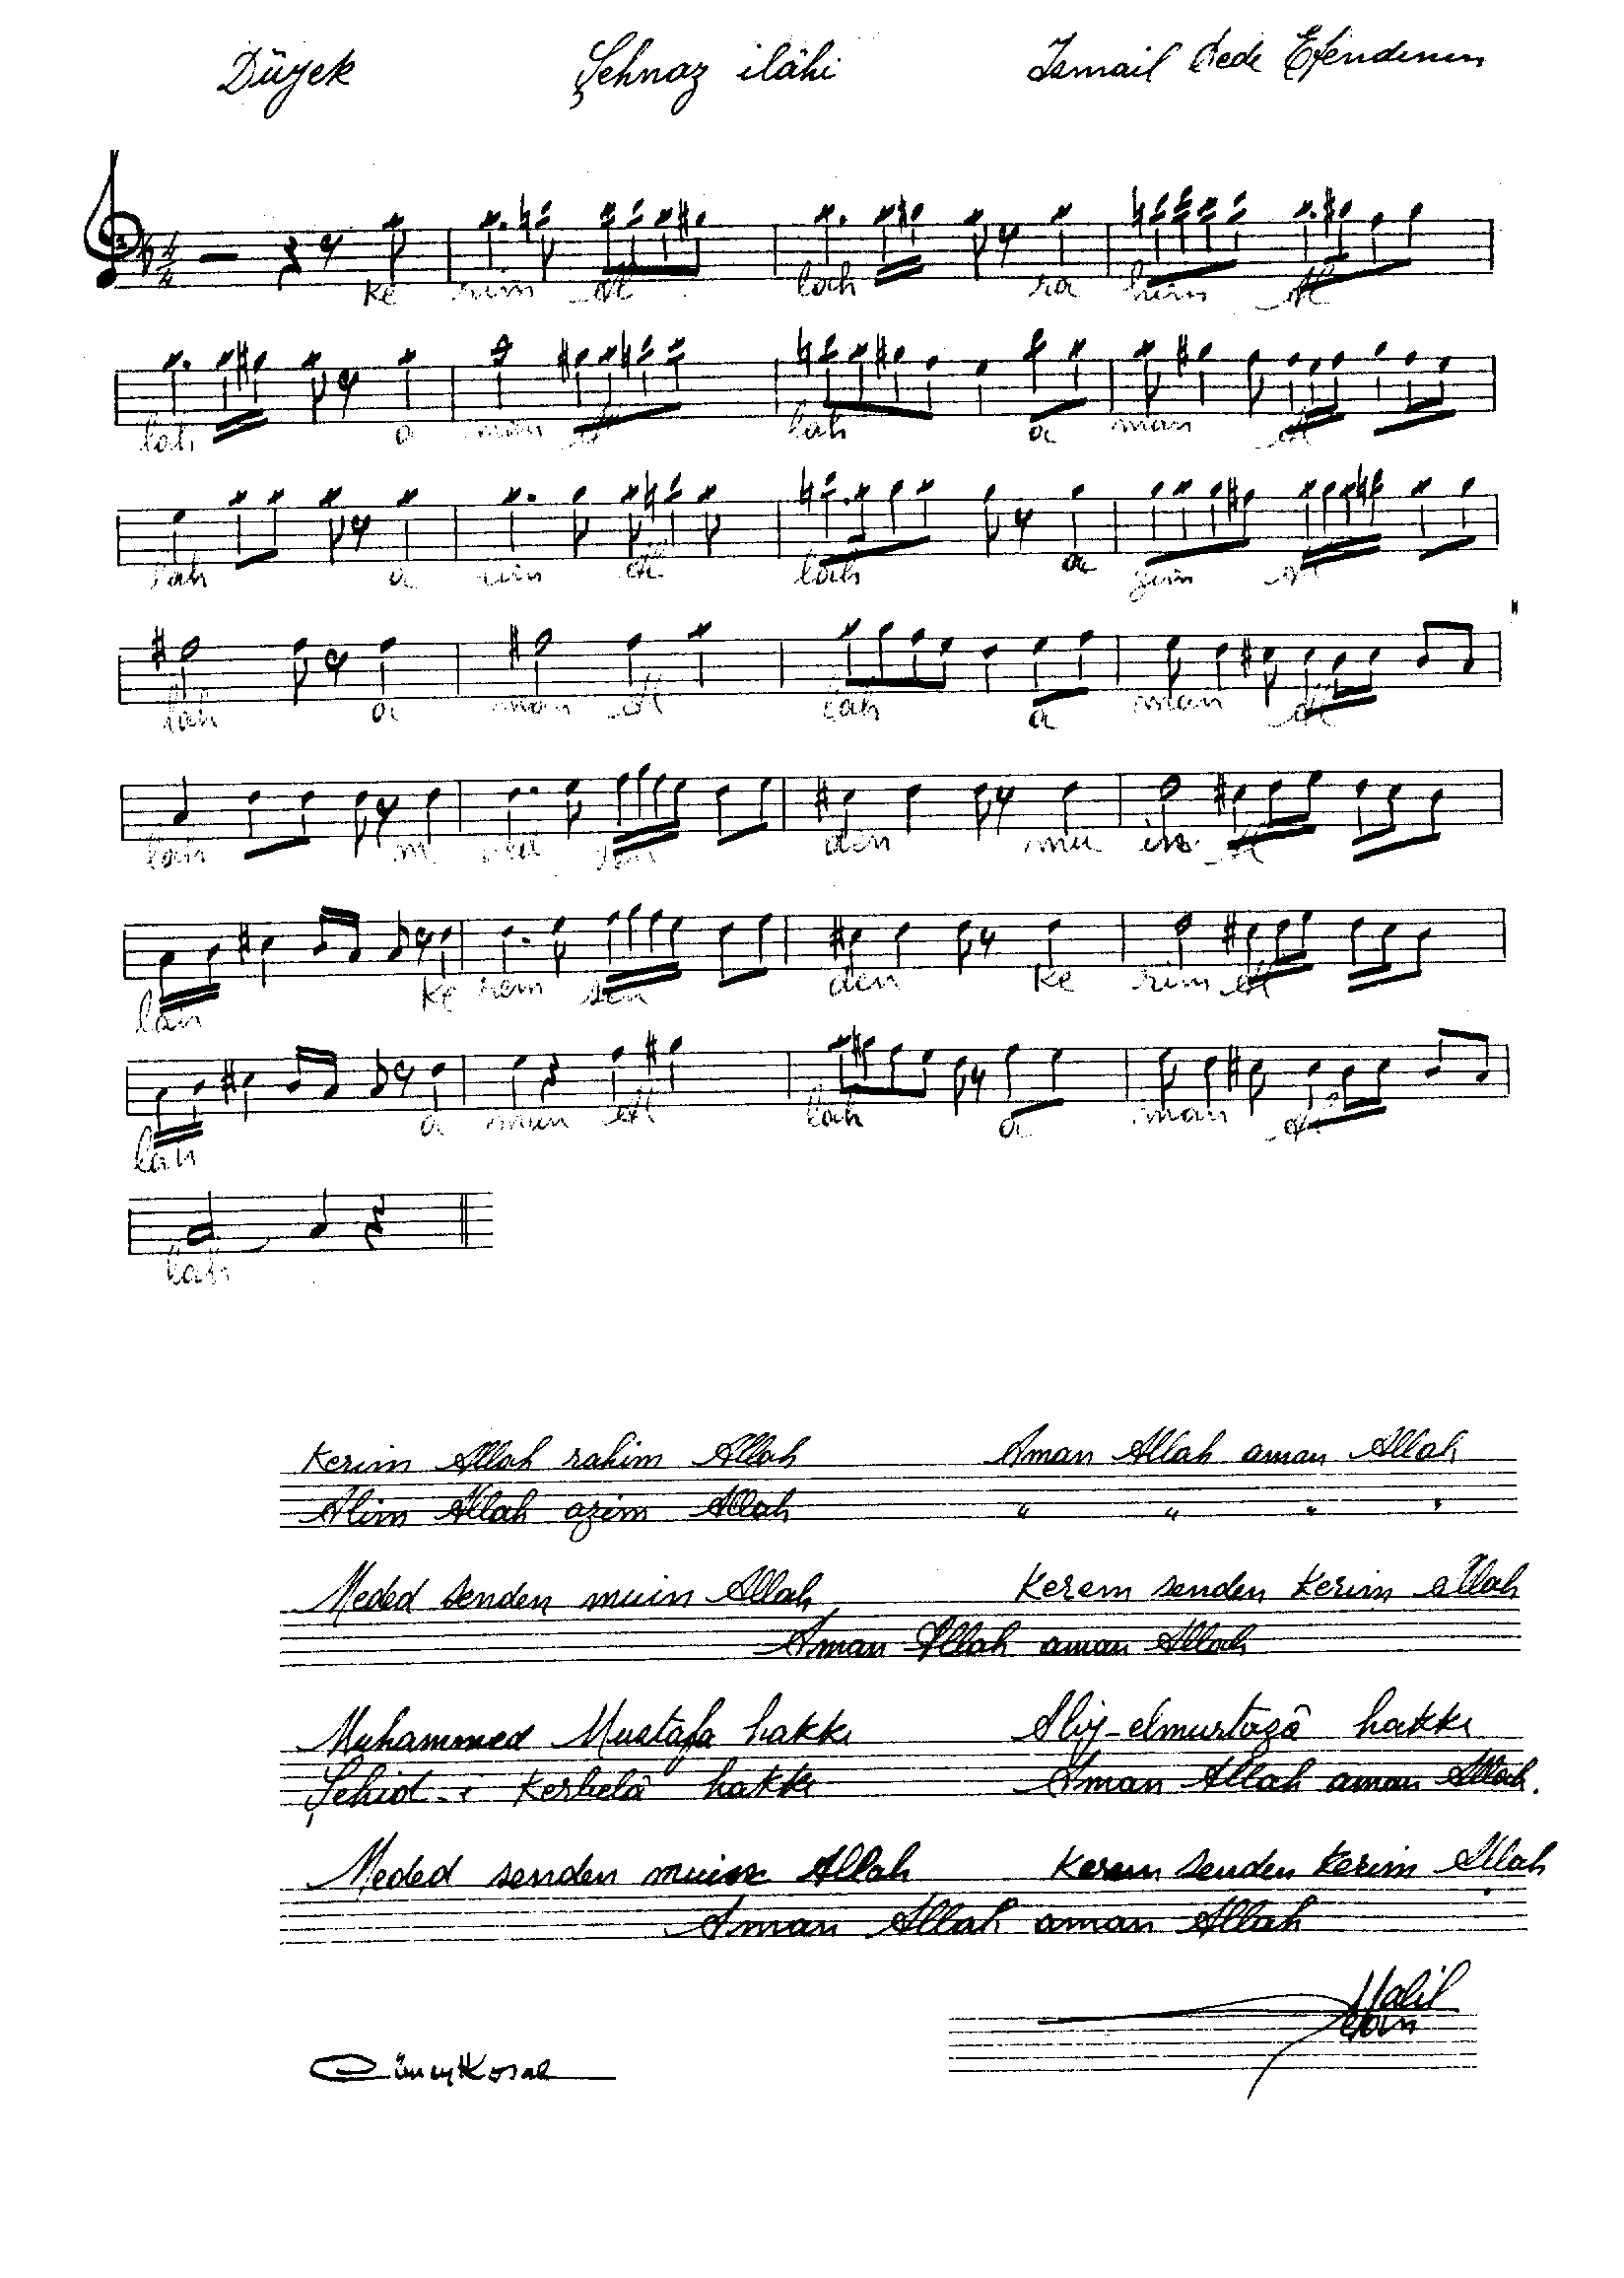 Düyek Şehnaz ilâhi İsmail Dede Efendinin
4/4
Ke rim Al lah ra him Al
lah a man Al lah a man Al
lah a lim Al lah a zim Al
lah a man Al lah a man Al
lah me ded sen den mu in Al
lah Ke rem sen den Ke rim Al
lah a man Al lah a man Al
lah
Kerim Allah rahim Allah Aman Allah aman Allah
Alim Allah azim Allah " " " "
Meded senden muin Allah Kerem senden Kerim Allah
Aman Allah aman Allah
Muhammed Mustafa hakkı Aliy-elmurtazâ hakkı
Şehid-i Kerbelâ hakkı Aman Allah aman Allah.
Meded senden muin Allah Kerem senden Kerim Allah
Aman Allah aman Allah
Halil
Cüneyt Kosal